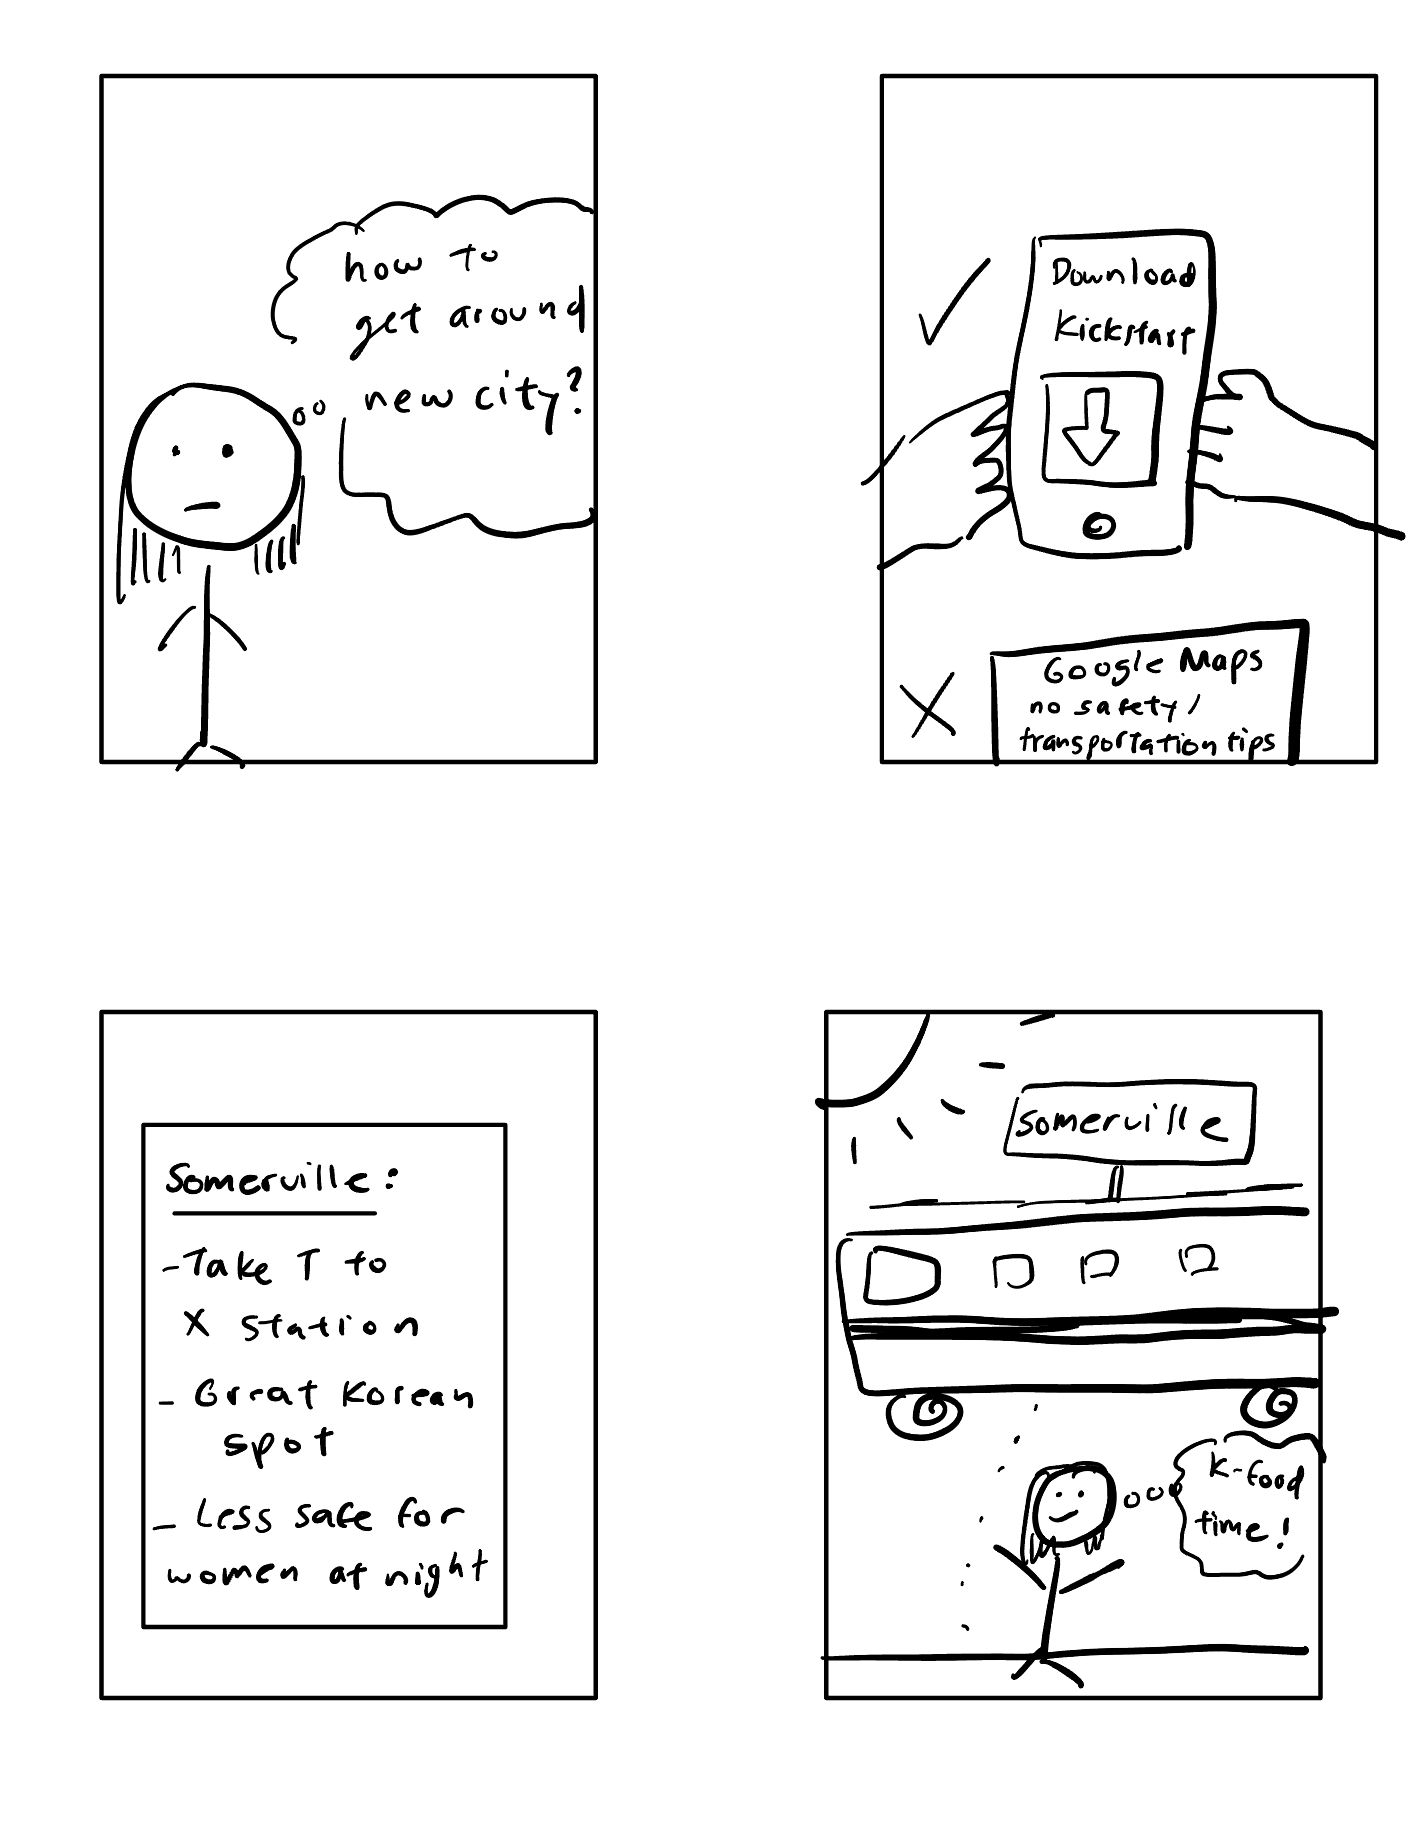 how to
get around
new city?
Download
Kickstart
Google Maps
no safety/
transportation tips
Somerville:
- Take T to
X station
- Great Korean
spot
- Less safe for
women at night
somerville
K-food
time!